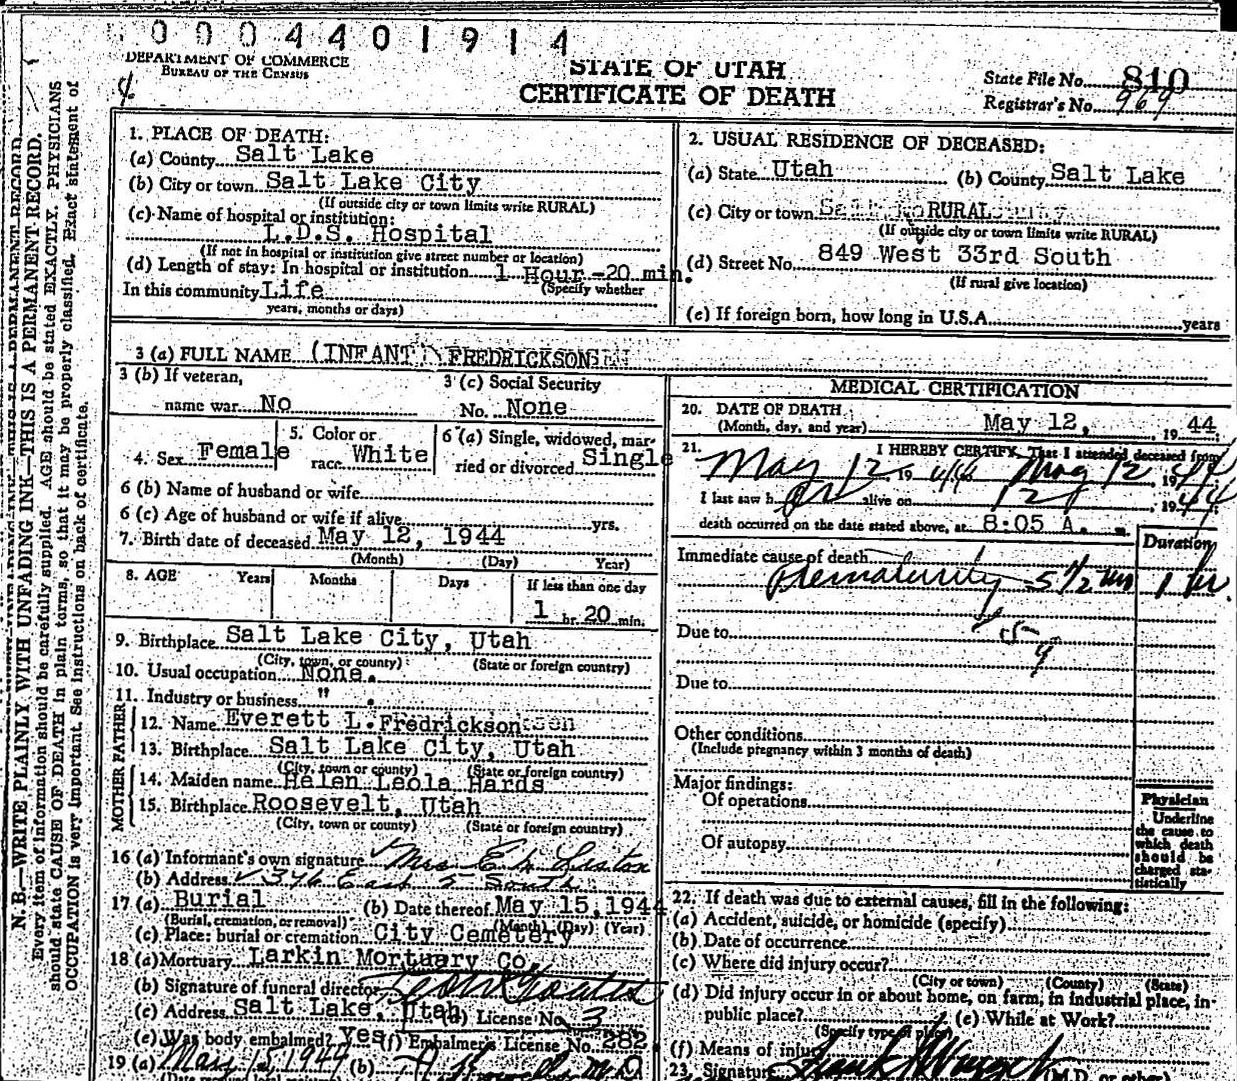 0004401914
DEPARTMENT OF COMMERCE
BUREAU OF THE CENSUS
4
STATE OF UTAH
CERTIFICATE OF DEATH
State File No. 810
Registrar's No. 969
N. B.—WRITE PLAINLY, WITH UNFADING INK—THIS IS A PERMANENT RECORD.
Every item of information should be carefully supplied. AGE should be stated EXACTLY. PHYSICIANS
should state CAUSE OF DEATH in plain terms, so that it may be properly classified. Exact statement of
OCCUPATION is very important. See instructions on back of certificate.
1. PLACE OF DEATH:
(a) County Salt Lake
(b) City or town Salt Lake City
(If outside city or town limits write RURAL)
(c) Name of hospital or institution:
L.D.S. Hospital
(If not in hospital or institution give street number or location)
(d) Length of stay: In hospital or institution 1 Hour-20 min.
(Specify whether
In this community Life
years, months or days)
2. USUAL RESIDENCE OF DECEASED:
(a) State Utah (b) County Salt Lake
(c) City or town RURAL
(If outside city or town limits write RURAL)
(d) Street No. 849 West 33rd South
(If rural give location)
(e) If foreign born, how long in U.S.A. years
3 (a) FULL NAME (INFANT) FREDRICKSON
3 (b) If veteran,
name war No
3 (c) Social Security
No. None
4. Sex Female
5. Color or
race White
6 (a) Single, widowed, mar-
ried or divorced Single
6 (b) Name of husband or wife
6 (c) Age of husband or wife if alive yrs.
7. Birth date of deceased May 12, 1944
(Month) (Day) Year)
8. AGE Years Months Days If less than one day
1 hr. 20 min.
9. Birthplace Salt Lake City, Utah
(City, town, or county) (State or foreign country)
10. Usual occupation None.
11. Industry or business " .
FATHER
12. Name Everett L. Fredrickson
13. Birthplace Salt Lake City, Utah
(City, town or county) (State or foreign country)
MOTHER
14. Maiden name Helen Leola Hards
15. Birthplace Roosevelt, Utah
(City, town or county) (State or foreign country)
16 (a) Informant's own signature Mrs E
(b) Address 346 East 5 South
17 (a) Burial (b) Date thereof May 15, 1944
(Burial, cremation, or removal) (Month) (Day) (Year)
(c) Place: burial or cremation City Cemetery
18 (a) Mortuary Larkin Mortuary Co.
(b) Signature of funeral director
(c) Address Salt Lake, Utah (d) License No. 3
(e) Was body embalmed? Yes (f) Embalmer's License No. 282
19 (a) May 15, 1944 (b)
MEDICAL CERTIFICATION
20. DATE OF DEATH
(Month, day, and year) May 12, 1944
21. I HEREBY CERTIFY, That I attended deceased from
May 12, 1944 May 12, 1944
I last saw h er alive on 12, 1944
death occurred on the date stated above, at 8:05 A. m.
Duration
Immediate cause of death
Prematurity 5 1/2 ms 1 hr.
Due to
Due to
Other conditions
(Include pregnancy within 3 months of death)
Major findings:
Of operations
Of autopsy
Physician
Underline
the cause to
which death
should be
charged sta-
tistically
22. If death was due to external causes, fill in the following:
(a) Accident, suicide, or homicide (specify)
(b) Date of occurrence
(c) Where did injury occur?
(City or town) (County) (State)
(d) Did injury occur in or about home, on farm, in industrial place, in
public place? (e) While at Work?
(Specify type of place)
(f) Means of injury
23. Signature (M.D. or other)